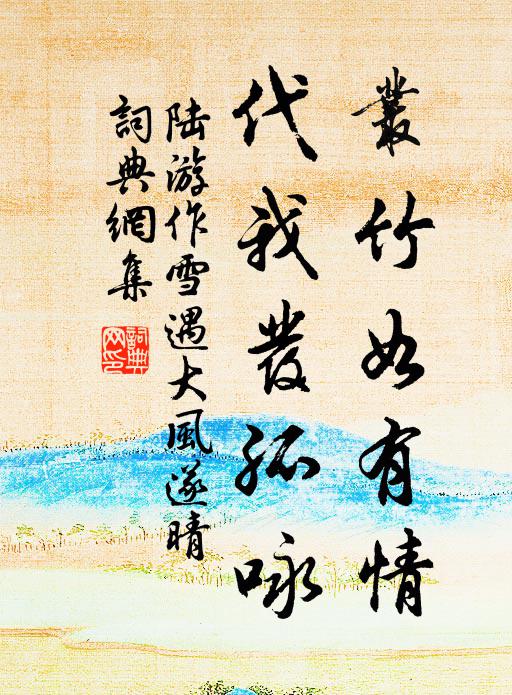 叢竹如有情
代我發孤咏
陆游作雪遇大風遂晴
詞典網集
詞典網印